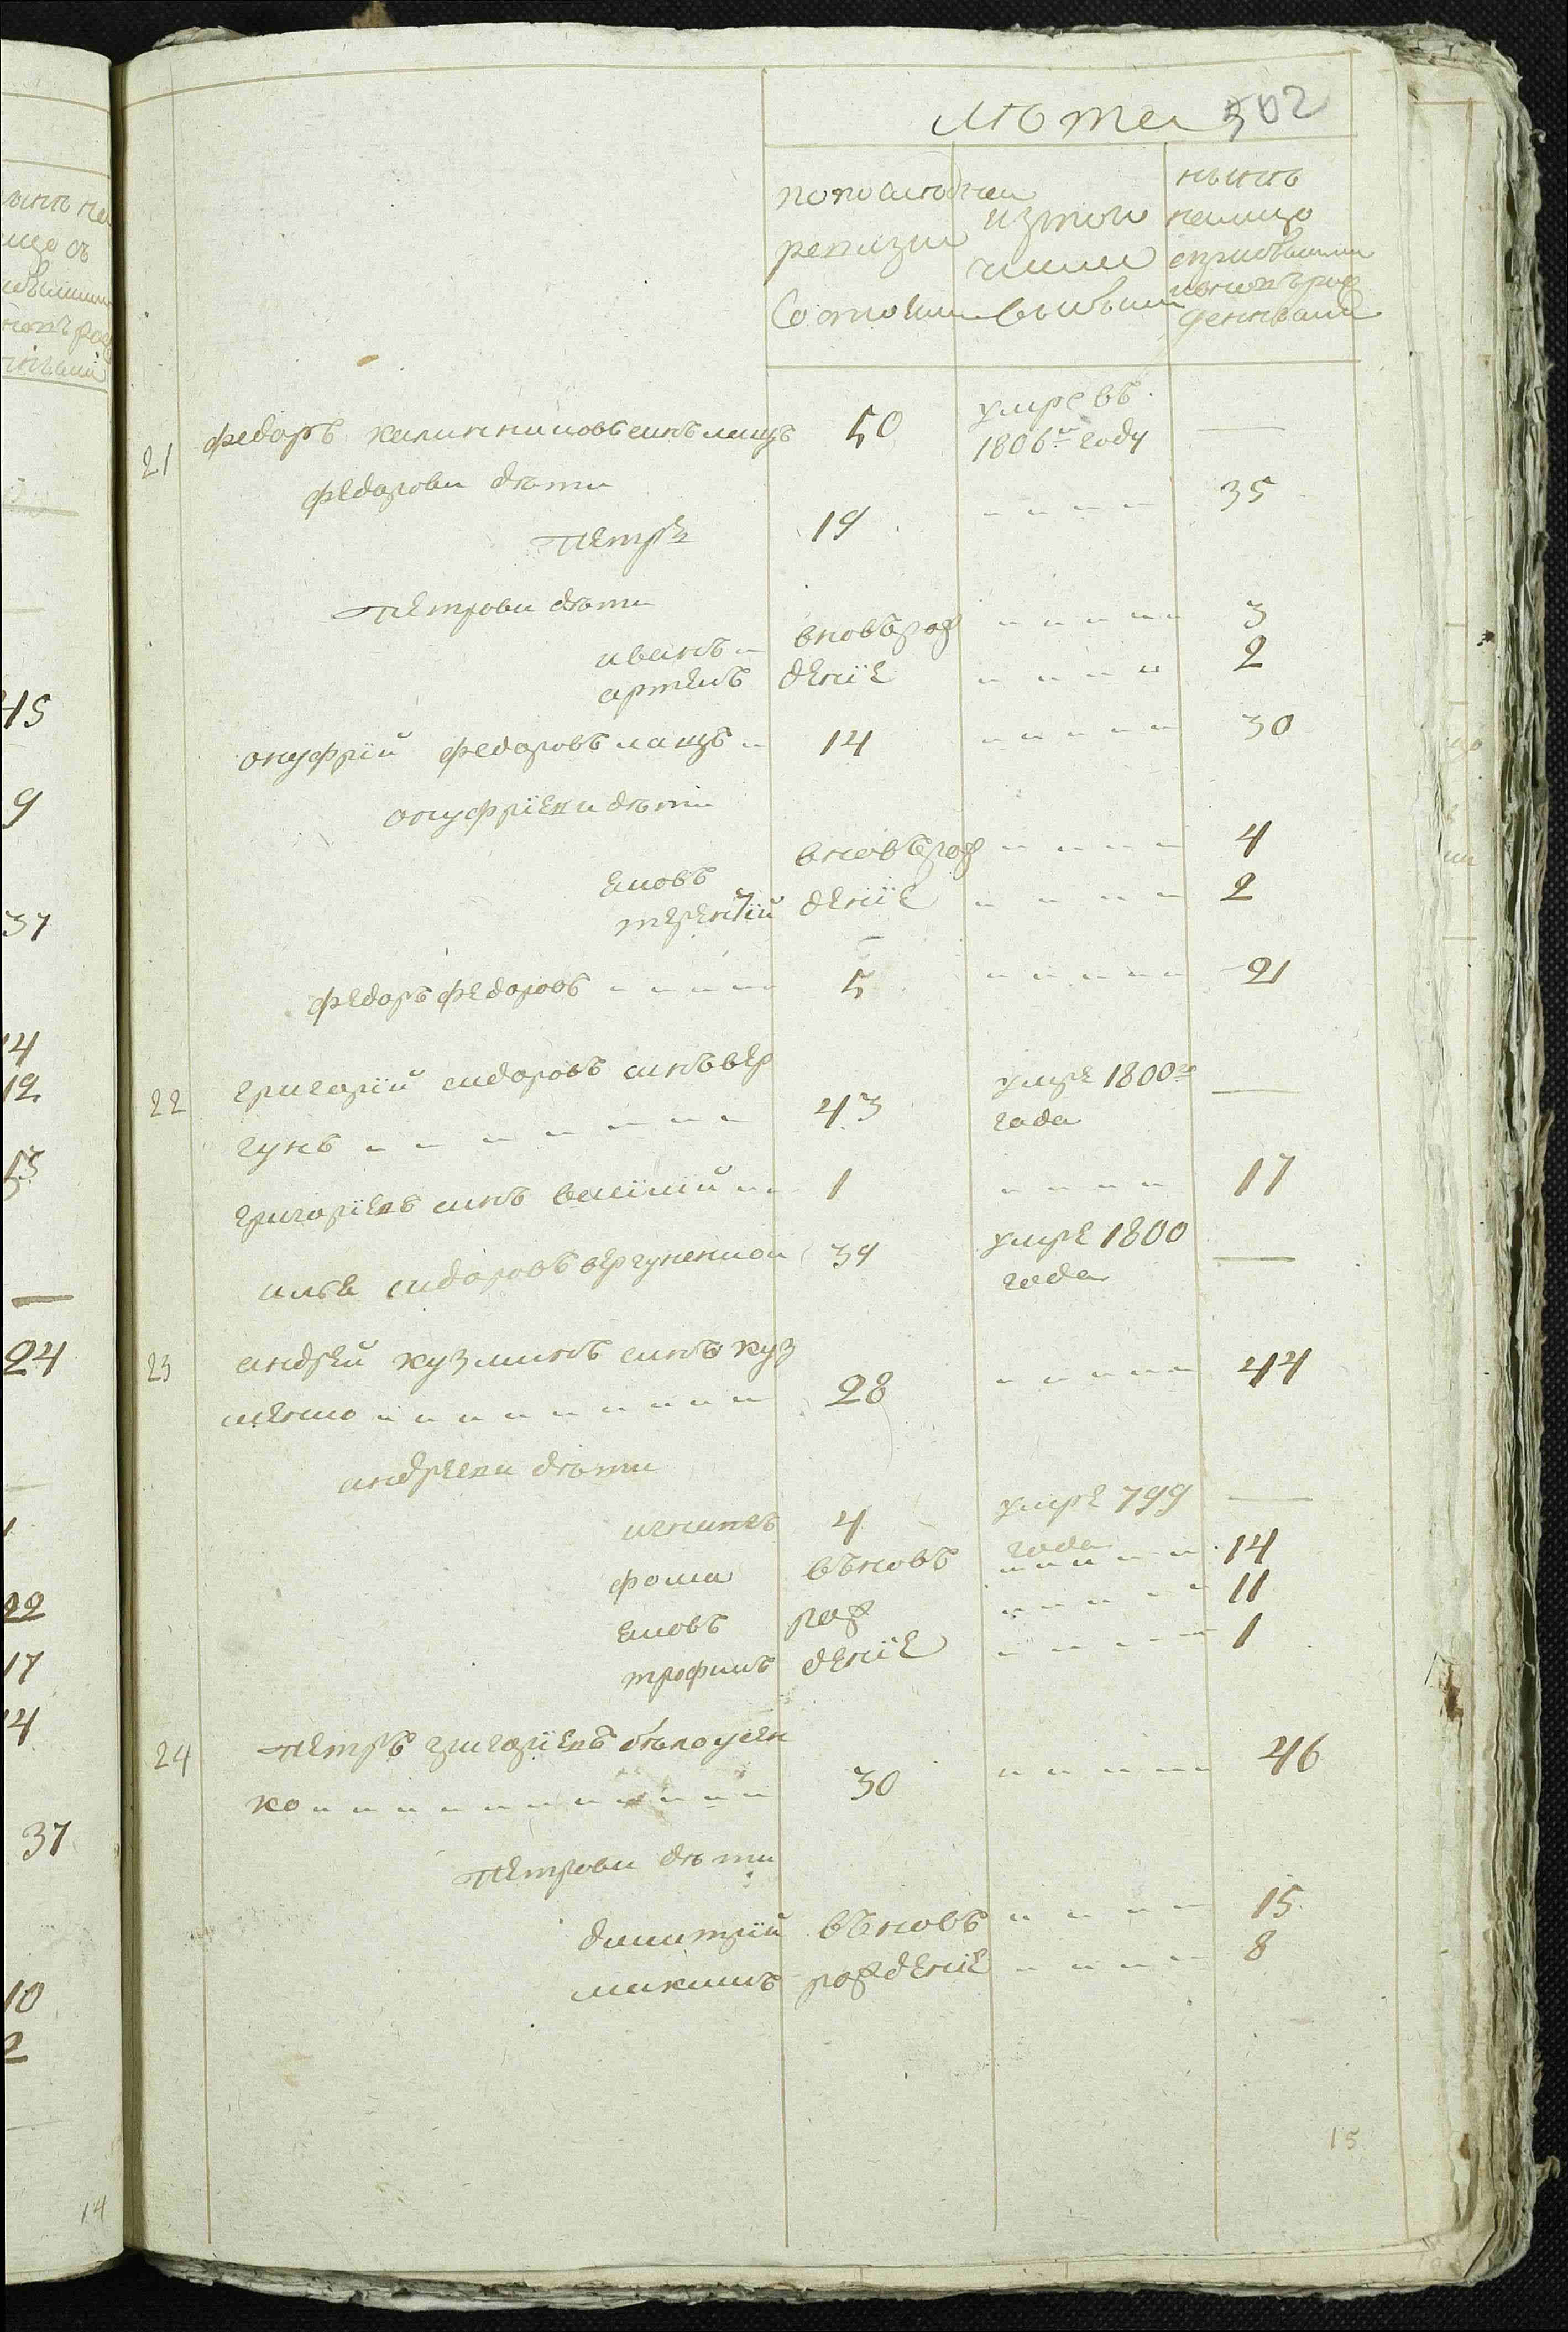 лѣта 502
попоследнеи
ревизии
Состояли
изтого
числа
выбыли
нынѣ
налицо
сприбылыми
ивновьрож
денными
21 федоръ калинниковъ синъ лащъ 50 умре въ 1806м году —
федорови дѣти
петръ 19 35
петрови дѣти
иванъ вновърож 3
артемъ деніе 2
онуфрій федоровъ лащъ 14 30
онуфріеви дѣти
яковъ вновърож 4
терентій деніе 2
федоръ федоровъ 5 21
22 григорій сидоровъ синъ вер
гунъ 43 умре 1800го года —
григоріевъ синъ василій 1 17
илья сидоровъ вергуненко 39 умре 1800 года —
23 андрей кузминъ синъ куз
менко 28 44
андрееви дѣти
игнатъ 4 умре 799 года —
фома въновъ 14
яковъ рож 11
трофимъ деніе 1
24 петръ григоріевъ бѣлоусен
ко 30 46
петрови дѣти
димитрій въновъ 15
макимъ рожденіе 8
15
45
9
37
14
12
13
24
1
22
17
14
37
10
2
14